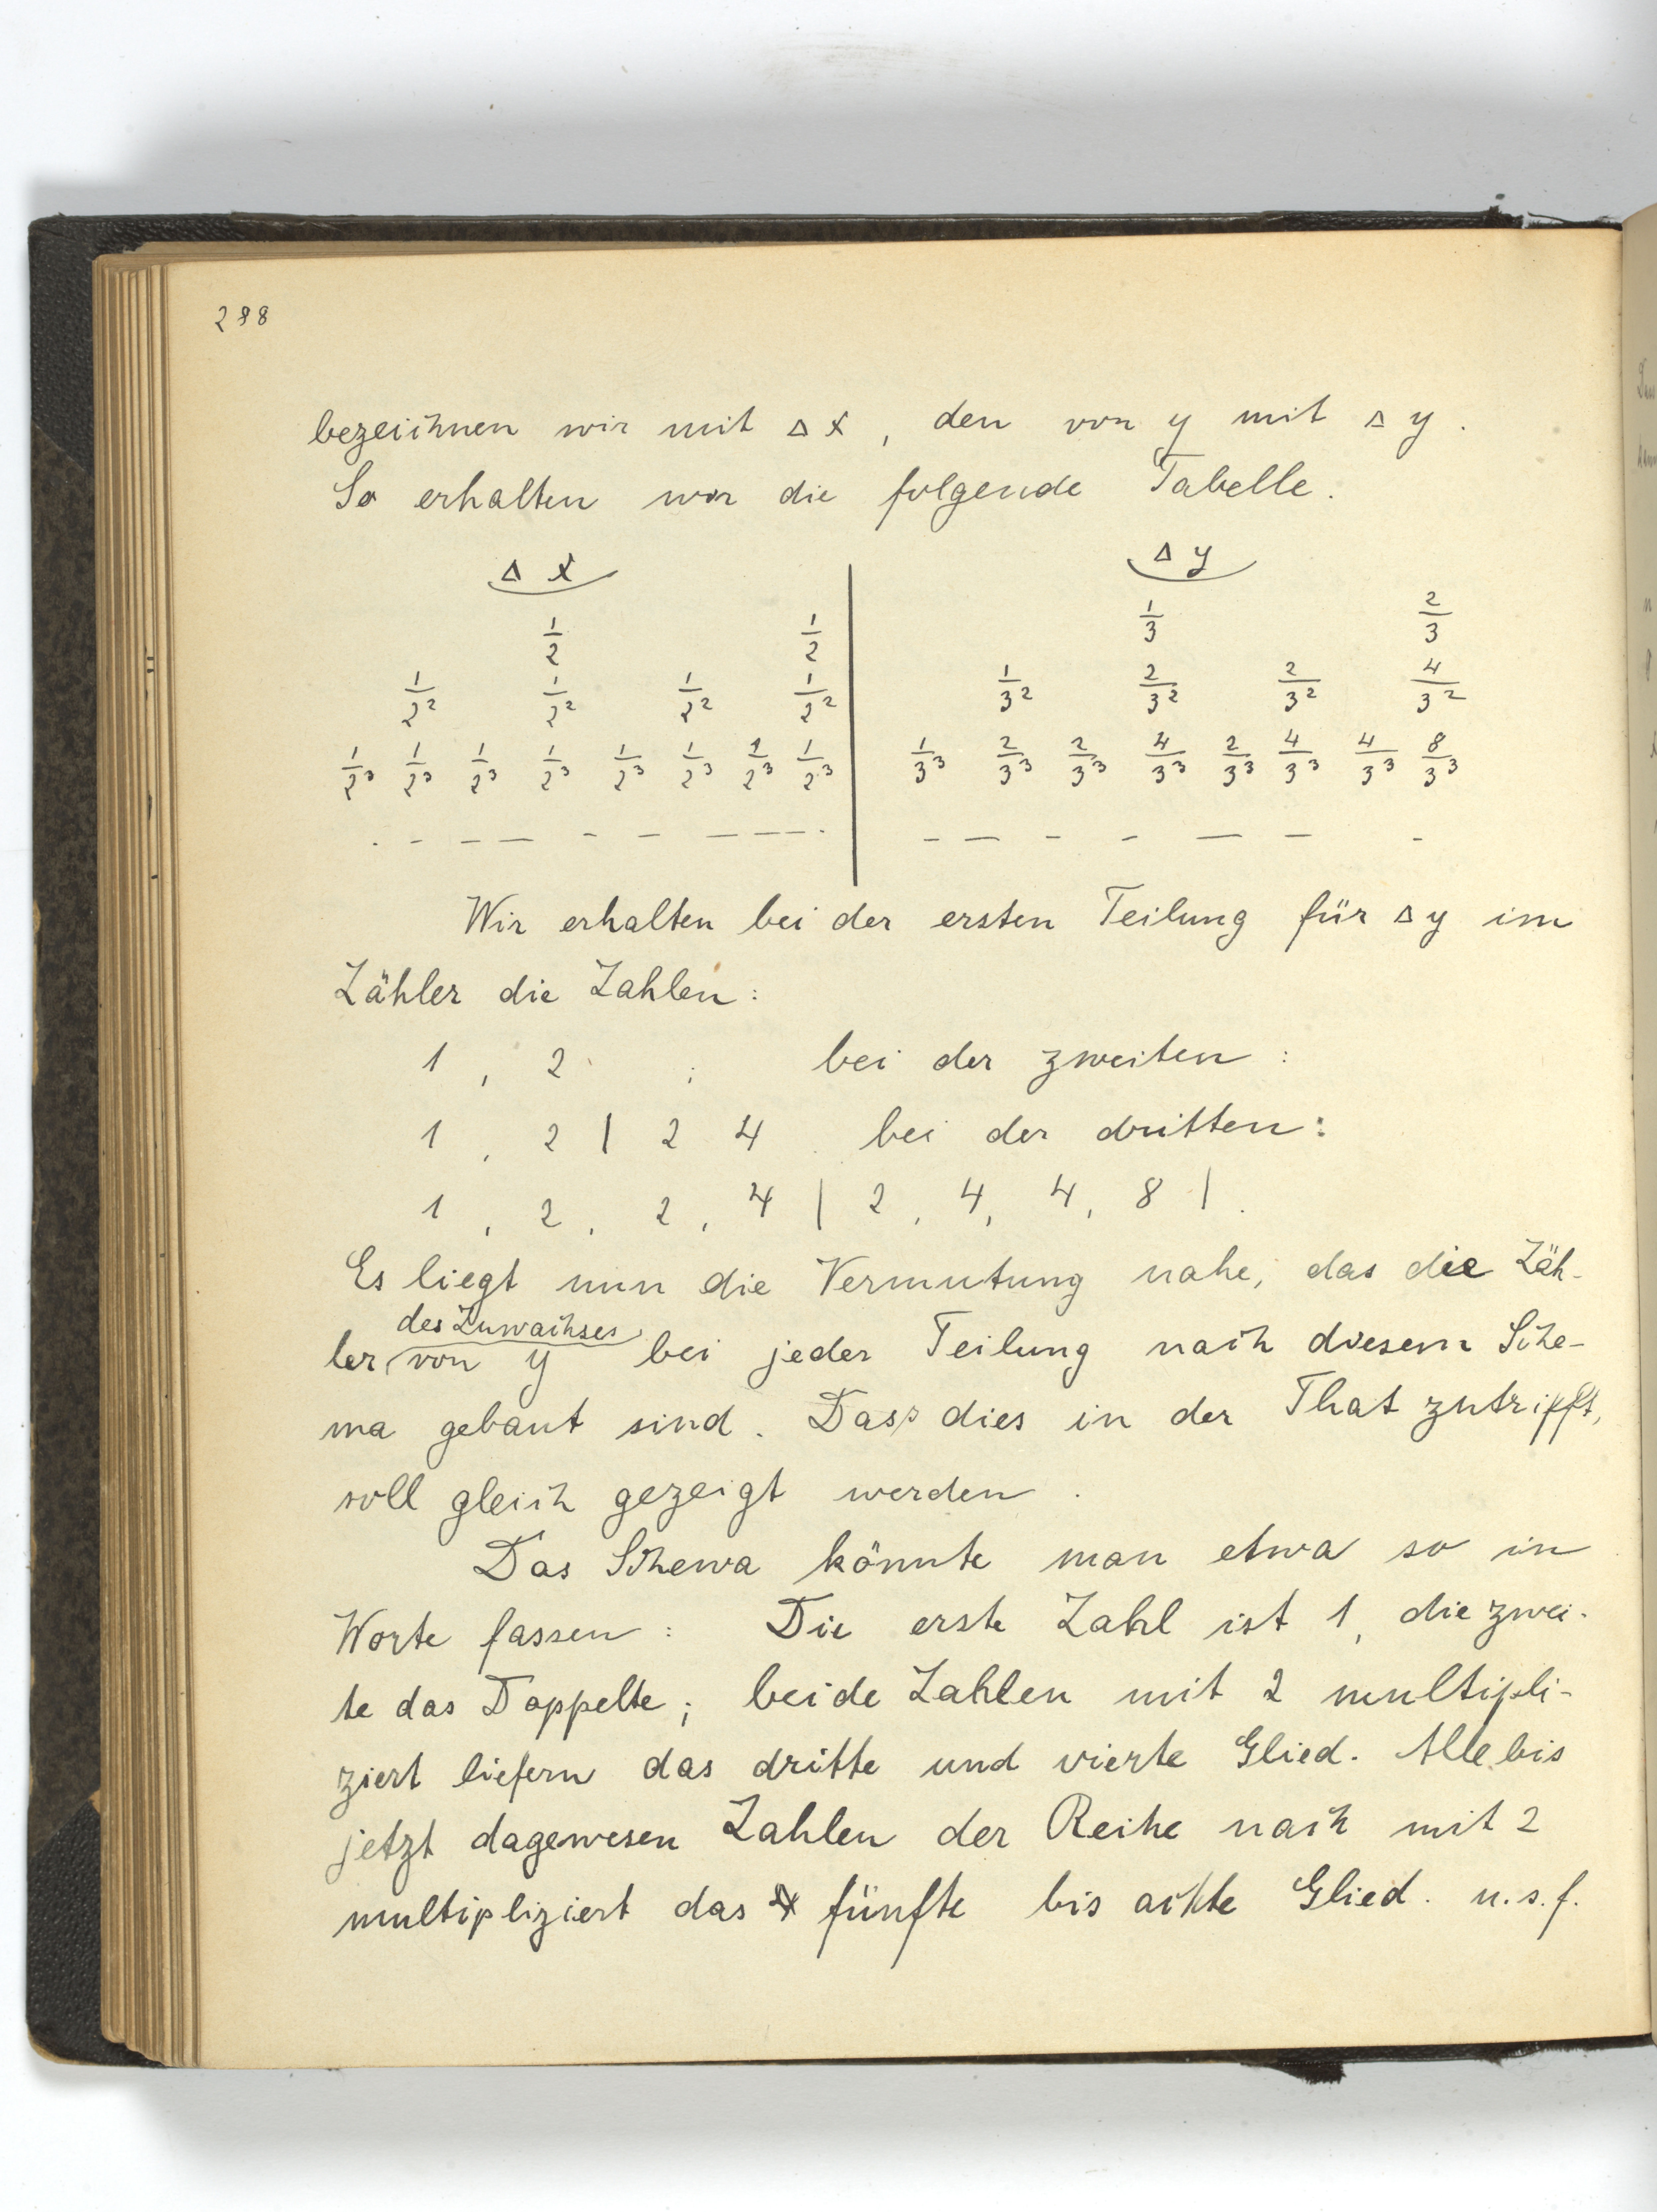 288
bezeichnen wir mit Δ x, den von y mit Δ y.
So erhalten wir die folgende Tabelle.
Δ x | Δ y
1/2 1/2 | 1/3 2/3
1/2² 1/2² 1/2² 1/2² | 1/3² 2/3² 2/3² 4/3²
1/2³ 1/2³ 1/2³ 1/2³ 1/2³ 1/2³ 1/2³ 1/2³ | 1/3³ 2/3³ 2/3³ 4/3³ 2/3³ 4/3³ 4/3³ 8/3³
Wir erhalten bei der ersten Teilung für Δ y im
Zähler die Zahlen:
1 , 2 ; bei der zweiten :
1 , 2 | 2 4 . bei der dritten:
1 , 2 , 2 , 4 | 2 , 4, 4, 8 | .
Es liegt nun die Vermutung nahe, das die Zäh-
des Zuwachses
ler von y bei jeder Teilung nach diesem Sche-
ma gebaut sind. Dass dies in der That zutrifft,
soll gleich gezeigt werden.
Das Schema könnte man etwa so in
Worte fassen: Die erste Zahl ist 1, die zwei-
te das Doppelte; beide Zahlen mit 2 multipli-
ziert liefern das dritte und vierte Glied. Alle bis
jetzt dagewesen Zahlen der Reihe nach mit 2
multipliziert das fünfte bis achte Glied. u.s.f.